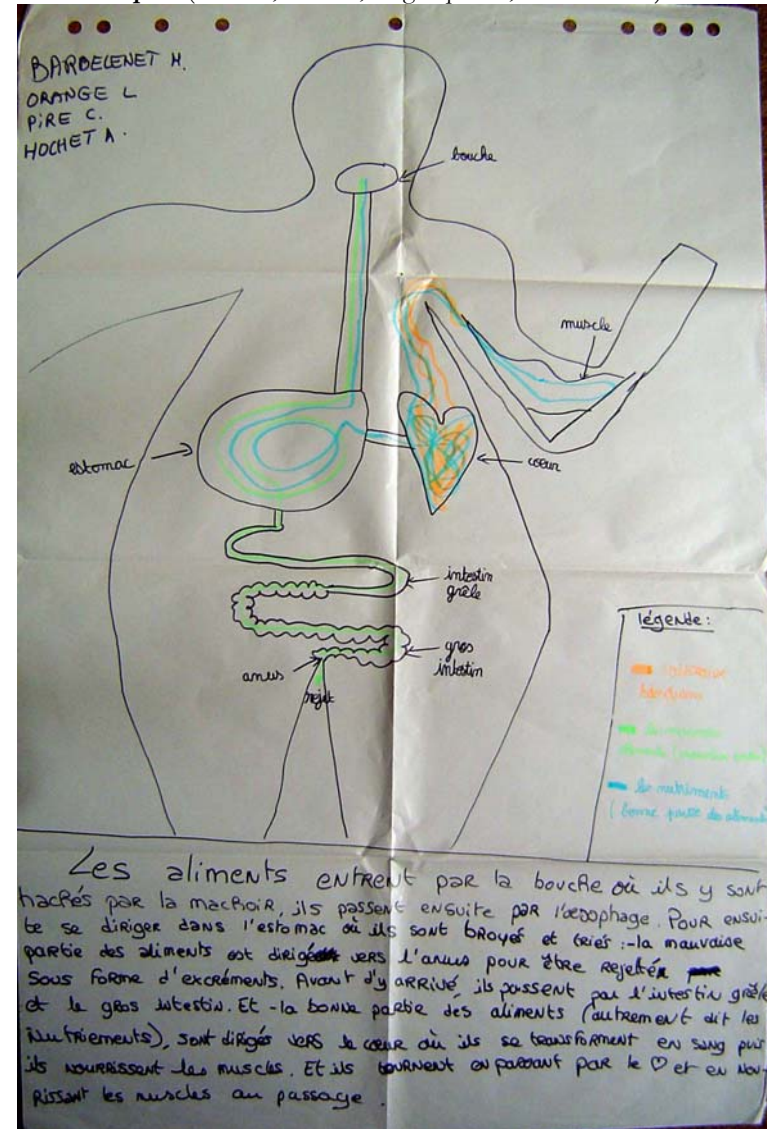 BARBELENET M.
ORANGE L
PIRE C.
HOCHET A.
bouche
muscle
estomac
coeur
intestin
grêle
gros
intestin
anus
rejet
légende :
les nutriments
( bonne partie des aliments
Les aliments entrent par la bouche où ils y sont
hachés par la machoir, ils passent ensuite par l'œsophage. Pour ensui-
te se diriger dans l'estomac où ils sont broyés et triés :-la mauvaise
partie des aliments est dirigée vers l'anus pour être rejetés
sous forme d'excréments. Avant d'y arrivé, ils passent par l'intestin grêle
et le gros intestin. Et -la bonne partie des aliments (autrement dit les
Nutriements), sont dirigés vers le cœur où ils se transforment en sang puis
ils nourrissent les muscles. Et ils tournent en passant par le ♡ et en nou-
rissant les muscles au passage.